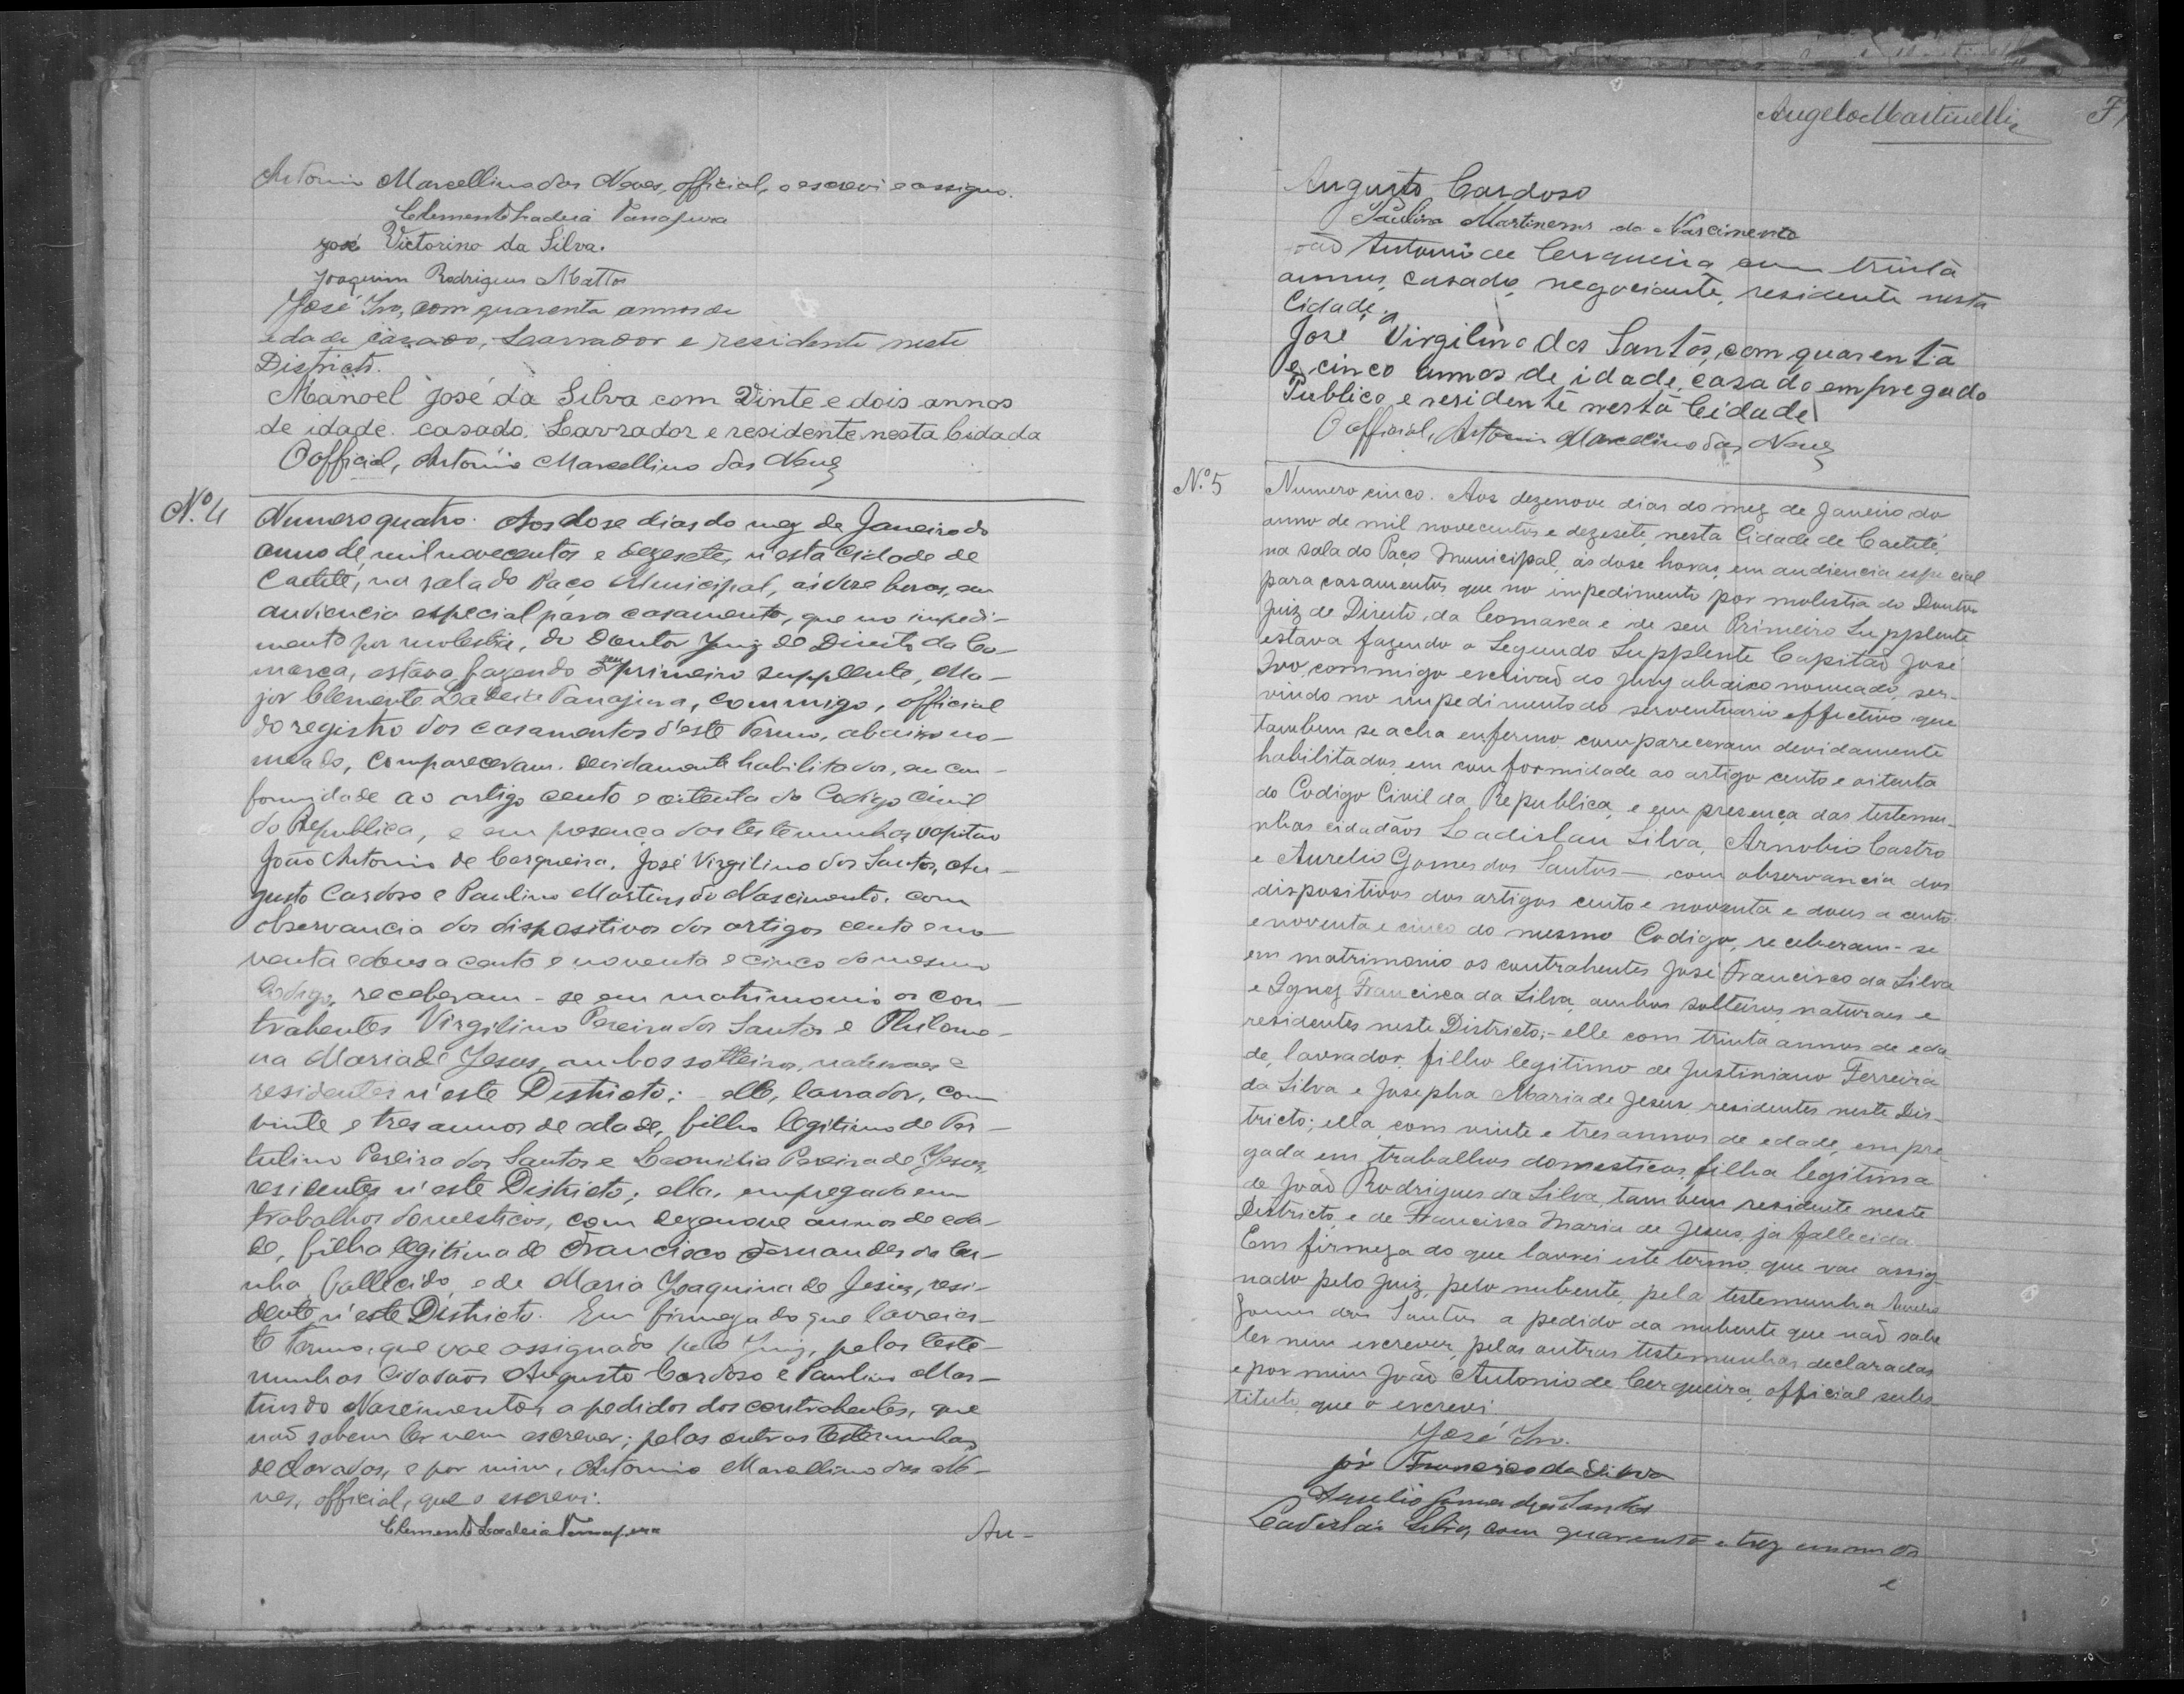 Antonio Marcellino das Neves, official, o escrevi e assigno.
Clemente Ladeia Tanajura
José Victorino da Silva.
Joaquim Rodrigues Mattos
José Ivo, com quarenta annos de
edade casado, Lavrador e residente neste
Districto.
Manoel José da Silva com Vinte e dois annos
de idade. casado. Lavrador e residente nesta Cidada
O official, Antonio Marcellino das Neves
Nº 4
Numero quatro. Aos dose dias do mez de Janeiro do
anno de mil novecentos e dezesete, n'esta Cidade de
Caeteté, na sala do Paço Municipal, ás doze horas, em
audiencia especial para casamento, que no impedi-
mento por molestia, do Doutor Juiz de Direito da Co-
marca, estava fazendo o seu primeiro supplente, Ma-
jor Clemente Ladeia Tanajura, commigo, official
do registro dos casamentos d'este Termo, abaixo no-
meado, compareceram. devidamente habilitados, em con-
formidade ao artigo cento e oitenta do Codigo Civil
da Republica, e em presença das testemunhas, capitão
João Antonio de Cerqueira, José Virgilino dos Santos, Au-
gusto Cardoso e Paulino Martins do Nascimento. com
observancia dos dispositivos dos artigos cento e no-
venta e dous a cento e noventa e cinco do mesmo
Codigo, receberam-se em matrimonio os con-
trahentes Virgilino Pereira dos Santos e Philome-
na Maria de Jesus, ambos solteiros, naturaes e
residentes n'este Districto; elle, lavrador, com
vinte e tres annos de edade, filho legitimo de
Pereira dos Santos e Leonidia Pereira de Jesus,
residentes n'este Districto; ella, empregada em
trabalhos domesticos, com dezenove annos de eda-
de, filha legitima de Francisco Fernandes da Cu-
nha, fallecido, e de Maria Joaquina de Jesus, resi-
dente n'este Districto. Em firmeza do que lavrei es-
te Termo, que vae assignado pelo Juiz, pelas teste-
munhas Cidadãos Augusto Cardoso e Paulino Mar-
tins do Nascimento, a pedidos dos contrahentes, que
não sabem ler nem escrever; pelas outras testemunhas
declaradas, e por mim, Antonio Marcellino das Ne-
ves, official, que o escrevi.
Clemente Ladeia Tanajura
Au-
Angelo Martinelli
F
Augusto Cardoso
Paulino Martins do Nascimento
João Antonio de Cerqueira, com trinta
annos, casado, negociante, residente nesta
Cidade.
José Virgilino dos Santos, com quarenta
e cinco annos de idade, casado empregado
Publico, e residente nesta Cidade
O official, Antonio Marcellino das Neves
N.º 5
Numero cinco. Aos dezenove dias do mez de Janeiro do
anno de mil novecentos e dezesete, nesta Cidade de Caeteté,
na sala do Paço Municipal, ás dose horas, em audiencia especial
para casamentos que no impedimento por molestia do Doutor
Juiz de Direito, da Comarca e de seu Primeiro Supplente
estava fazendo o Segundo Supplente Capitaõ José
Ivo, commigo escrivaõ do Jury abaixo nomeado, ser-
vindo no impedimento do serventuario effectivo que
tambem se acha enfermo compareceram devidamente
habilitados, em conformidade ao artigo cento e oitenta
do Codigo Civil da Republica, e em presença das testemu-
nhas cidadãos Ladislau Silva, Arnobio Castro
e Aurelio Gomes dos Santos — com observancia dos
dispositivos dos artigos cento e noventa e dous a cento
e noventa e cinco do mesmo Codigo, receberam-se
em matrimonio os contrahentes José Francisco da Silva
e Ignez Francisca da Silva, ambos solteiros, naturaes e
residentes neste Districto; — elle com trinta annos de eda-
de, lavrador, filho legitimo de Justiniano Ferreira
da Silva e Josepha Maria de Jesus residentes neste Dis-
tricto; ella, com vinte e tres annos de edade, empre-
gada em trabalhos domesticos, filha legitima
de João Rodrigues da Silva, tambem residente neste
Districto, e de Francisca Maria de Jesus, ja fallecida.
Em firmeza do que lavrei este termo, que vae assig-
nado pelo Juiz, pelo nubente, pela testemunha Aurelio
Gomes dos Santos a pedido da nubente que naõ sabe
ler nem escrever, pelas outras testemunhas declaradas
e por mim João Antonio de Cerqueira, official subs-
tituto que o escrevi.
José Ivo.
José Francisco da Silva
Aurelio Gomes dos Santos
Ladislau Silva, com quarenta e trez annos
e